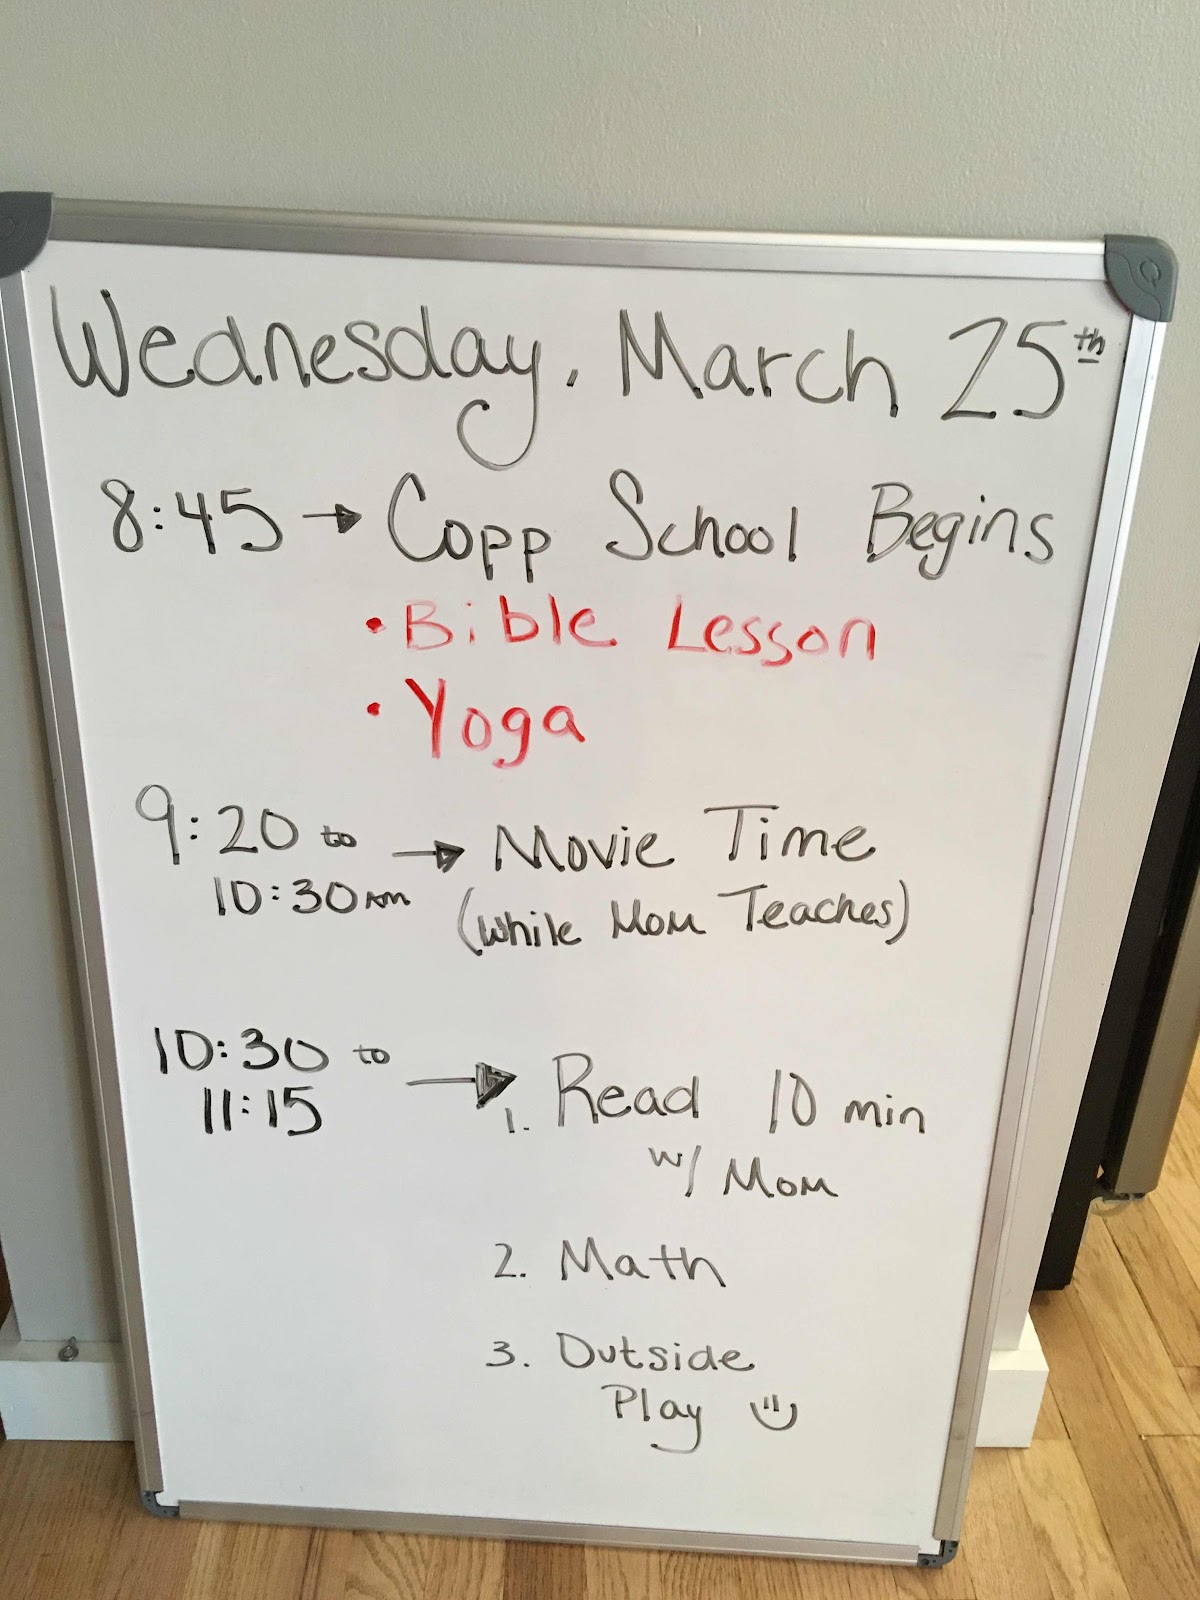 Wednesday, March 25th
8:45 → Copp School Begins
• Bible Lesson
• Yoga
9:20 to
10:30 AM → Movie Time
(While Mom Teaches)
10:30 to
11:15 →
1. Read 10 min
w/ Mom
2. Math
3. Outside
Play